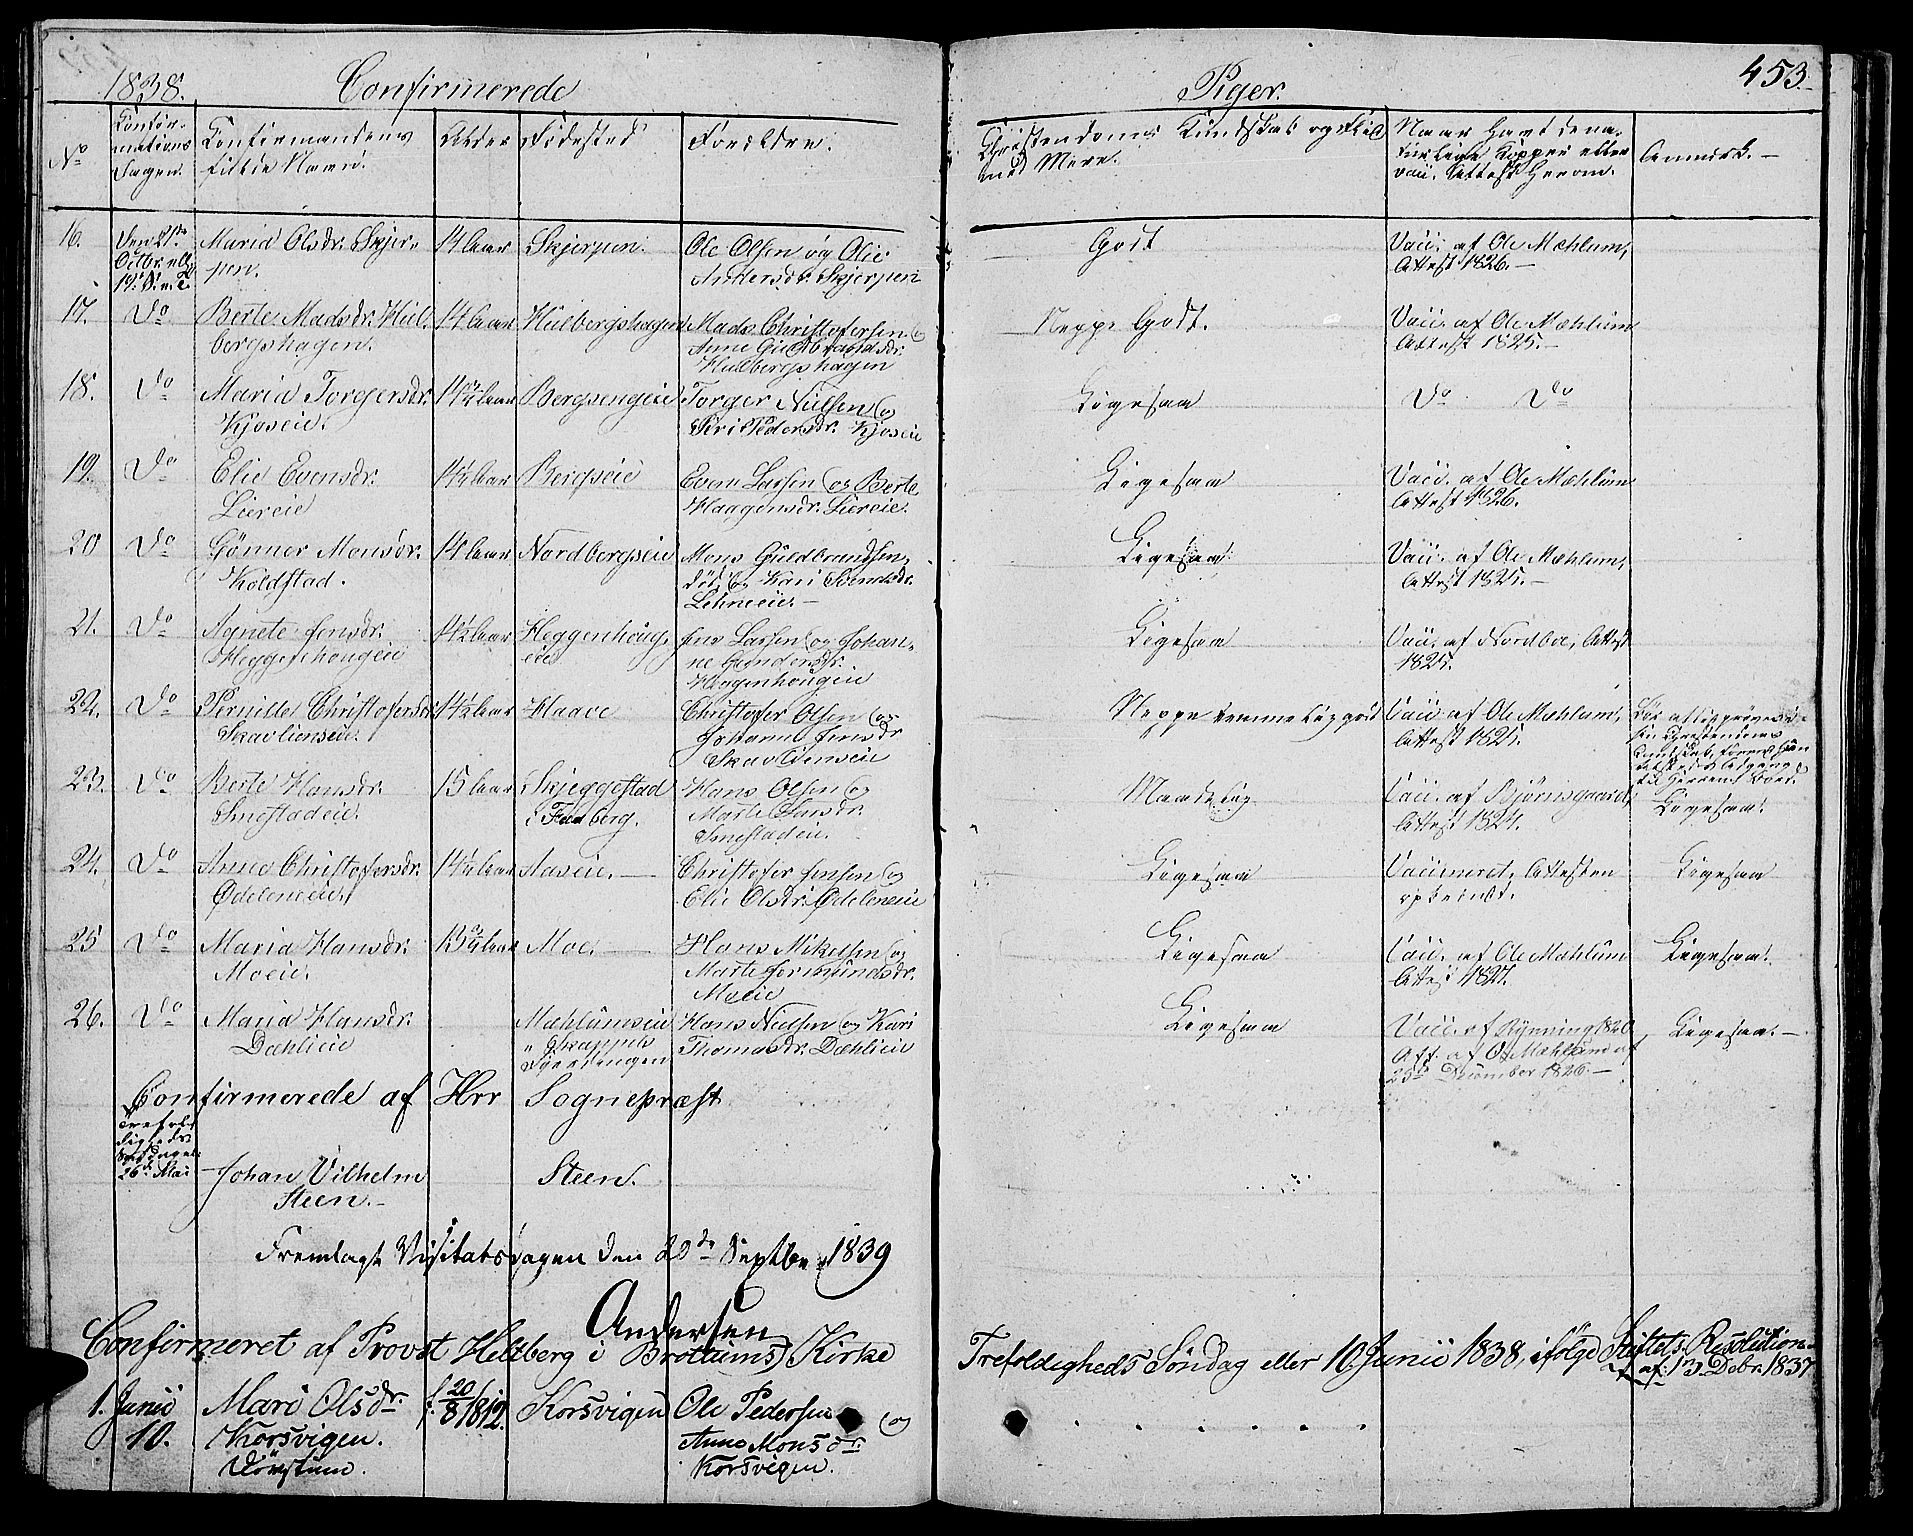 1838.
Confirmerede
Piger.
453.
No
Confir-
mations
Dagen.
Confirmandens
fulde Navn.
Alder
Fødested
Forældre.
Christendoms Kundskab og Flid
med Mere.
Naar havt de na-
turlige Kopper eller
vacc. Attest herom.
Anmærk.-
16.
Maria Olsdr. Skjer-
pen.
14 Aar
Skjerpen.
Ole Olsen og Olie
Andersdr. Skjerpen
Godt
Vacc. af Ole Mæhlum,
Attest 1826.-
17.
Do
Berte Madsdr. Hul-
bergshagen.
14 Aar
Hulbergshagen
Mads Christofersen og
Anne Guldbrandsdr.
Hulbergshagen
Neppe Godt.
Vacc. af Ole Mæhlum
Attest 1825.-
18.
Do
Maria Torgersdr.
Kjoseie.
Aar
Bergsengeie
Torger Nielsen og
Siri Pedersdr. Kjoseie
Ligesaa
Do Do
19.
Do
Elie Evensdr.
Liereie
14½ Aar
Bergseie
Even Larsen og Berte
Haagensdr. Liereie.
Ligesaa
Vacc. af Ole Mæhlum
Attest 1826.
20
Do
Gønner Monsdr.
Koldstad.
14 Aar
Nordbergseie
Mons Guldbrandsen,
død, og Kari Svendsdr.
Lehneeie.-
Ligesaa
Vacc. af Ole Mæhlum,
Attest 1825.-
21.
Do
Agnete Jensdr.
Heggenhougeie
14½ Aar
Heggenhoug-
eie
Jens Larsen og Johan-
ne
Heggenhougeie
Ligesaa
Vacc. af Nordboe, Attest
1825.
22.
Do
Pernille Christofersdr
Skavlienseie.
14½ Aar
Haave
Christofer Olsen og
Johanne Jensdr
Skavlienseie
Neppe
Vacc. af Ole Mæhlum,
Attest 1825.
23.
Do
Berte Hansdr.
Smestadeie.
15 Aar
Skjeggestad
i Faaberg.
Hans Olsen og
Marte
Smestadeie.
Maadelig
Vacc. af Bjørnsgaard,
Attest
Ligesaa.
24.
Do
Anne Christofersdr.
Ødeleneie.
14½ Aar
Aaseie.-
Christofer Jensen og
Elie Olsdr. Ødeleneie
Ligesaa
Vaccineret, Attesten
Ligesaa
25
Do
Maria Hansdr.
Moeie.
15¾ Aar
Moe.-
Hans Mikelsen og
Marte Jermundsdr.
Moeie
Ligesaa
Vacc. af Ole Mæhlum
Attest 1827.
Ligesaa.
26.
Do
Maria Hansdr.
Dæhlieie
Mæhlumseie
Hans Nielsen og Kari
Thomasdr. Dæhlieie
Ligesaa
Vacc. af Rynning 1820
Att. af Ole Mæhlum af
December 1826.-
Ligesaa.-
Confirmerede af Hrr Sognepræst
Trefol-
digheds
Søndagen
26de Mai
Johan Vilhelm
Steen.-
Steen.
Fremlagt Visitatsdagen den 20de Septbr 1839
Andersen
Confirmeret af Provst Heltberg i Brøttums Kirke
Trefoldigheds Søndag eller 10 Junii 1838, ifølge Stiftets Resolution
af 13 Debr. 1837
1.
Junii
10.
Mari Olsdr.
Korsvigen.
f. 20/8 1812.
Korsvigen
Ole Pedersen og
Anne Monsdr.
Korsvigen.